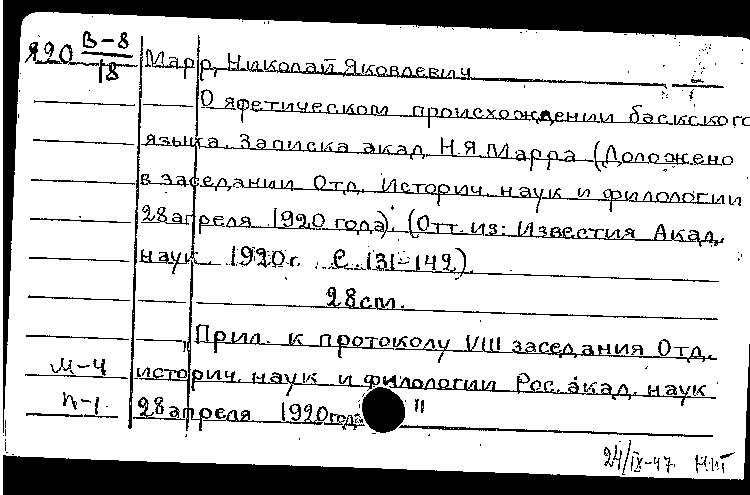 920 В-8
18
Марр, Николай Яковлевич
О яфетическом происхождении баскского
языка. Записка акад. Н.Я.Марра (Доложено
в заседании Отд. Историч. наук и филологии
28 апреля 1920 года). (Отт. из: Известия Акад.
наук. 1920г. С. 131-142).
28 см.
"Прил. к протоколу VIII заседания Отд.
историч. наук и филологии Рос. акад. наук
28 апреля 1920 года "
М-4
П-1
24/IX-47